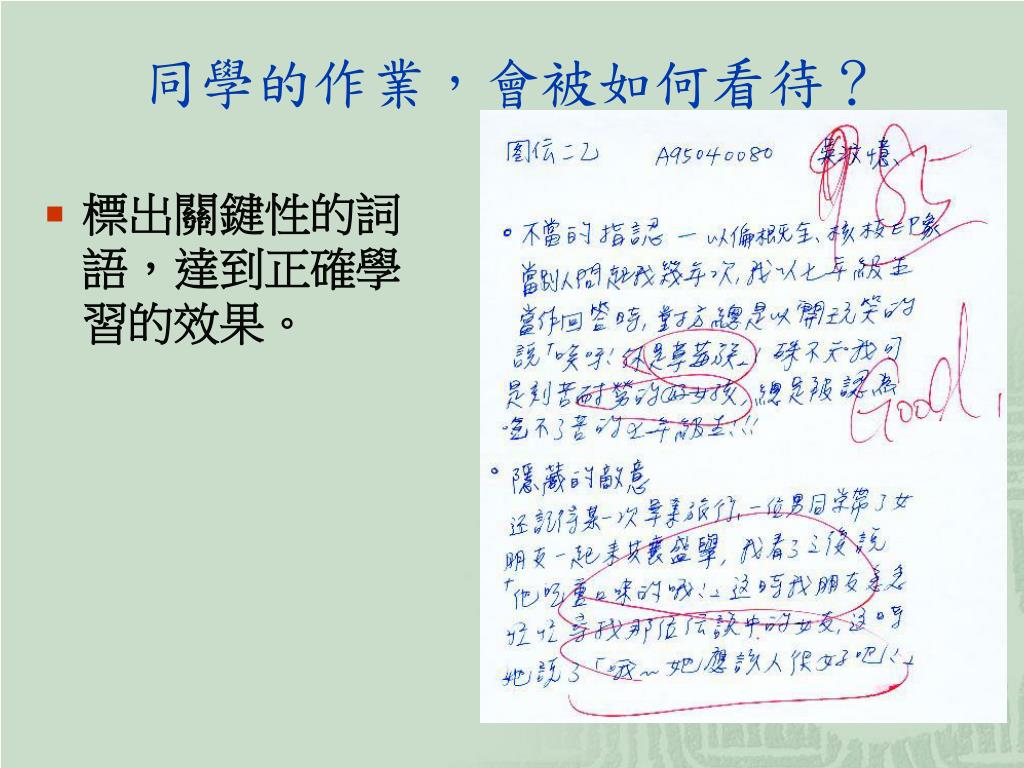 同學的作業，會被如何看待？
標出關鍵性的詞
語，達到正確學
習的效果。
圖傳二乙 A95040080
85
不當的指認 — 以偏概全、核校印象
當別人問起我幾年次，我以七年級生
當作回答時，對方總是以開玩笑的
說「唉呀！你是草莓族」！殊不知我可
是刻苦耐勞的好女孩，總是被認為
吃不了苦的七年級生!!!
Good!
隱藏的敵意
还記得某一次畢業旅行，一位男同学帶了女
朋友一起來共襄盛舉，我看了之後說
「他吃重口味的哦!」这時我朋友急急
忙忙尋找那位傳說中的女友，这時
她說了「哦～她應該人很好吧!!」